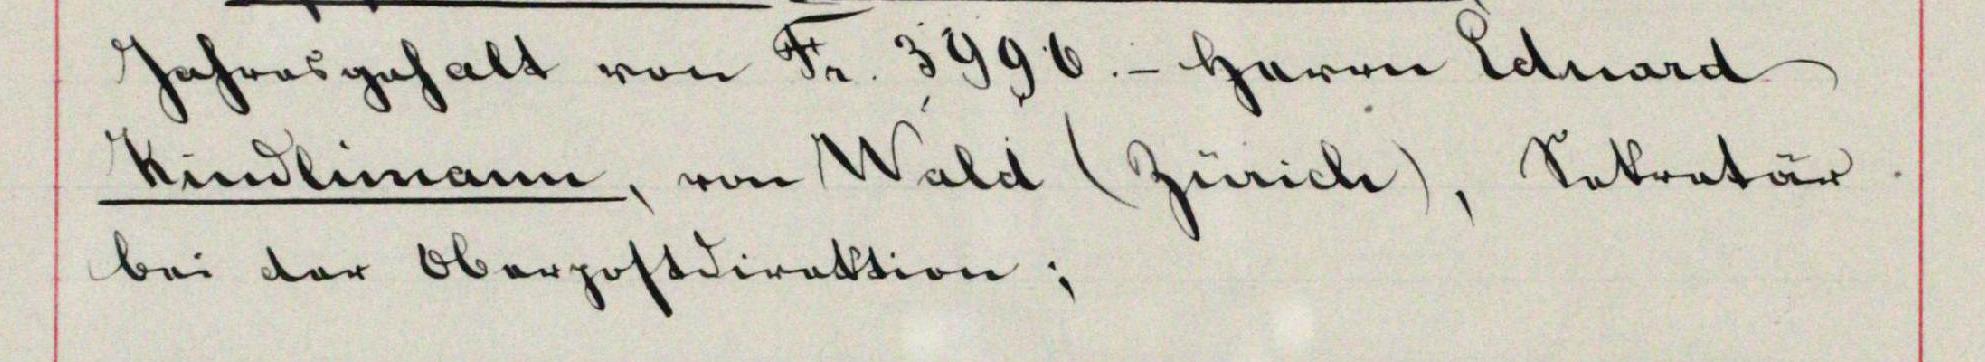 Jahresgehalt von Fr. 3996.- Herrn Eduard
Kindlimann, von Wald (Zürich), Sekretär
bei der Oberpostdirektion;